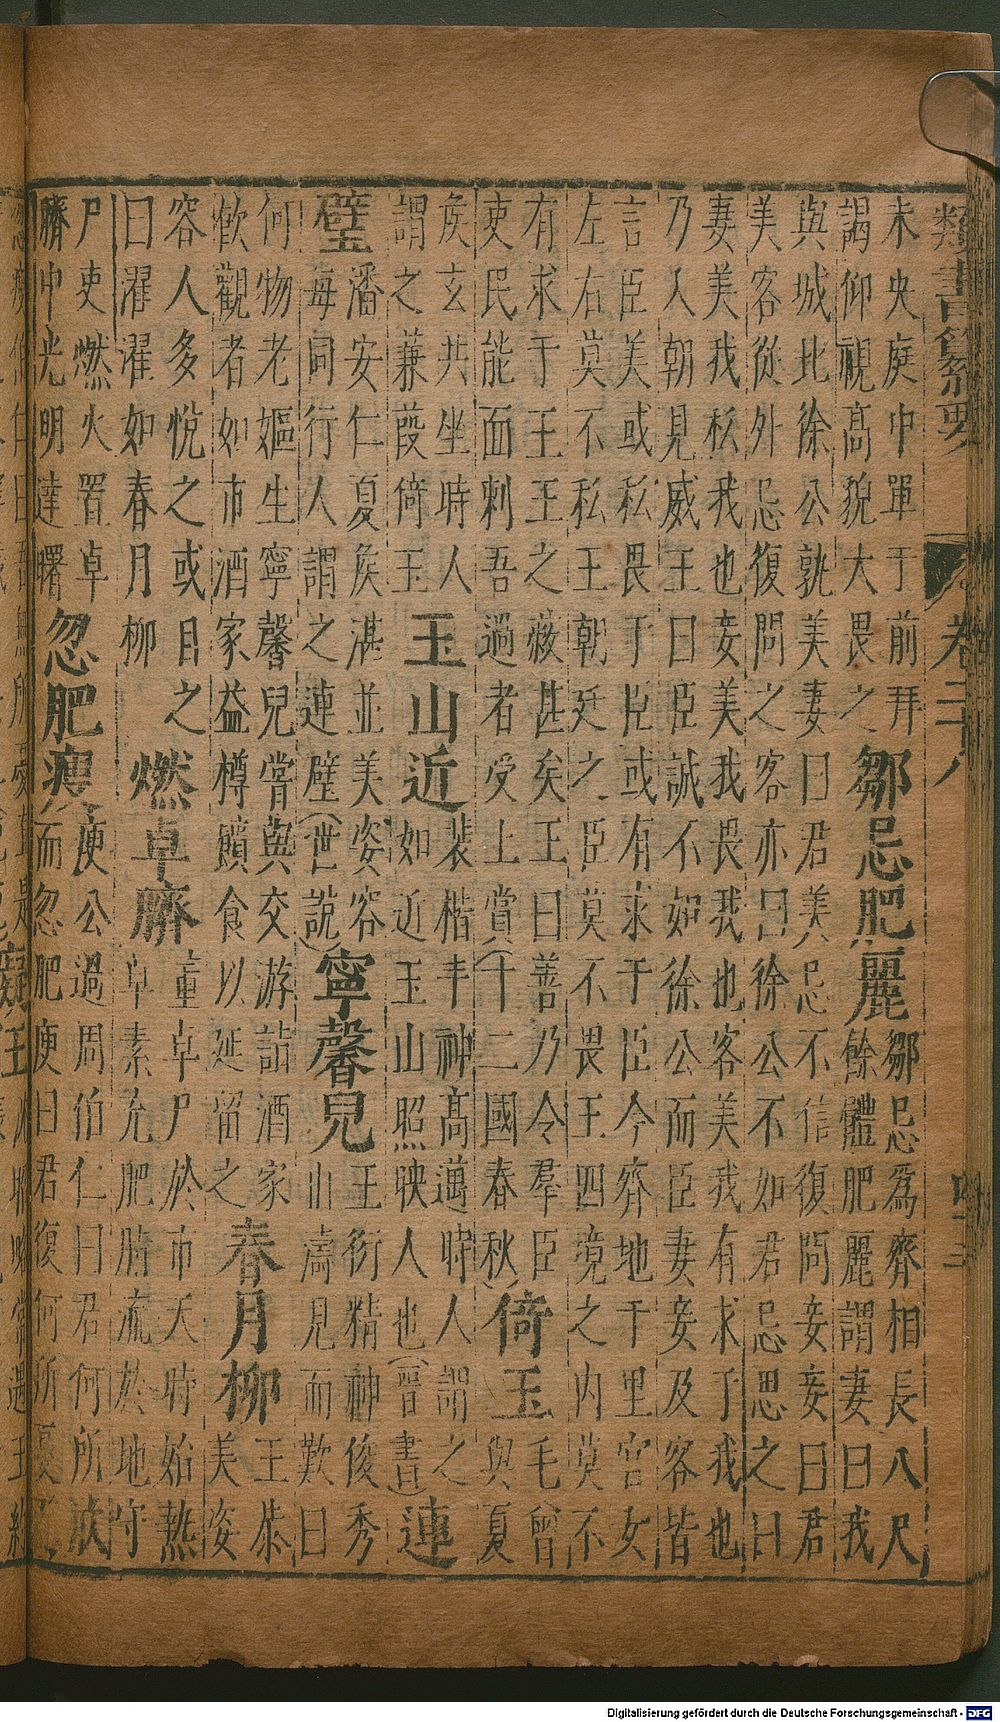 類書纂要 卷二十八
未央庭中單于前拜
謁仰視高貌大畏之
鄒忌肥麗
鄒忌為齊相長八尺
餘體肥麗謂妻曰我
與城北徐公孰美妻曰君美忌不信復問妾妾曰君
美客從外忌復問之客亦曰徐公不如君忌思之曰
妻美我私我也妾美我畏我也客美我有求于我也
乃入朝見威王曰臣誠不如徐公而臣妻妾及客皆
言臣美或私畏于臣或有求于臣今齊地千里宮女
左右莫不私王朝廷之臣莫不畏王四境之內莫不
有求于王王之蔽甚矣王曰善乃令羣臣
吏民能面刺吾過者受上賞(十二國春秋)
倚玉
毛曾
與夏
侯玄共坐時人
謂之蒹葭倚玉
玉山近
裴楷丰神高邁時人謂之
如近玉山照映人也(晉書)
連
璧
潘安仁夏侯湛並美姿容
每同行人謂之連璧(世說)
寧馨兒
王衍精神俊秀
山濤見而歎曰
何物老嫗生寧馨兒嘗與交游詣酒家
歡觀者如市酒家益樽饋食以延留之
春月柳
王恭
美姿
容人多悅之或目之
曰濯濯如春月柳
燃卓臍
董卓尸於市天時始熱
卓素充肥脂流於地守
尸吏燃火置卓
臍中光明達曙
忽肥瘦
庾公過周伯仁曰君何所欣
而忽肥庾曰君復何所憂
Digitalisierung gefördert durch die Deutsche Forschungsgemeinschaft - DFG